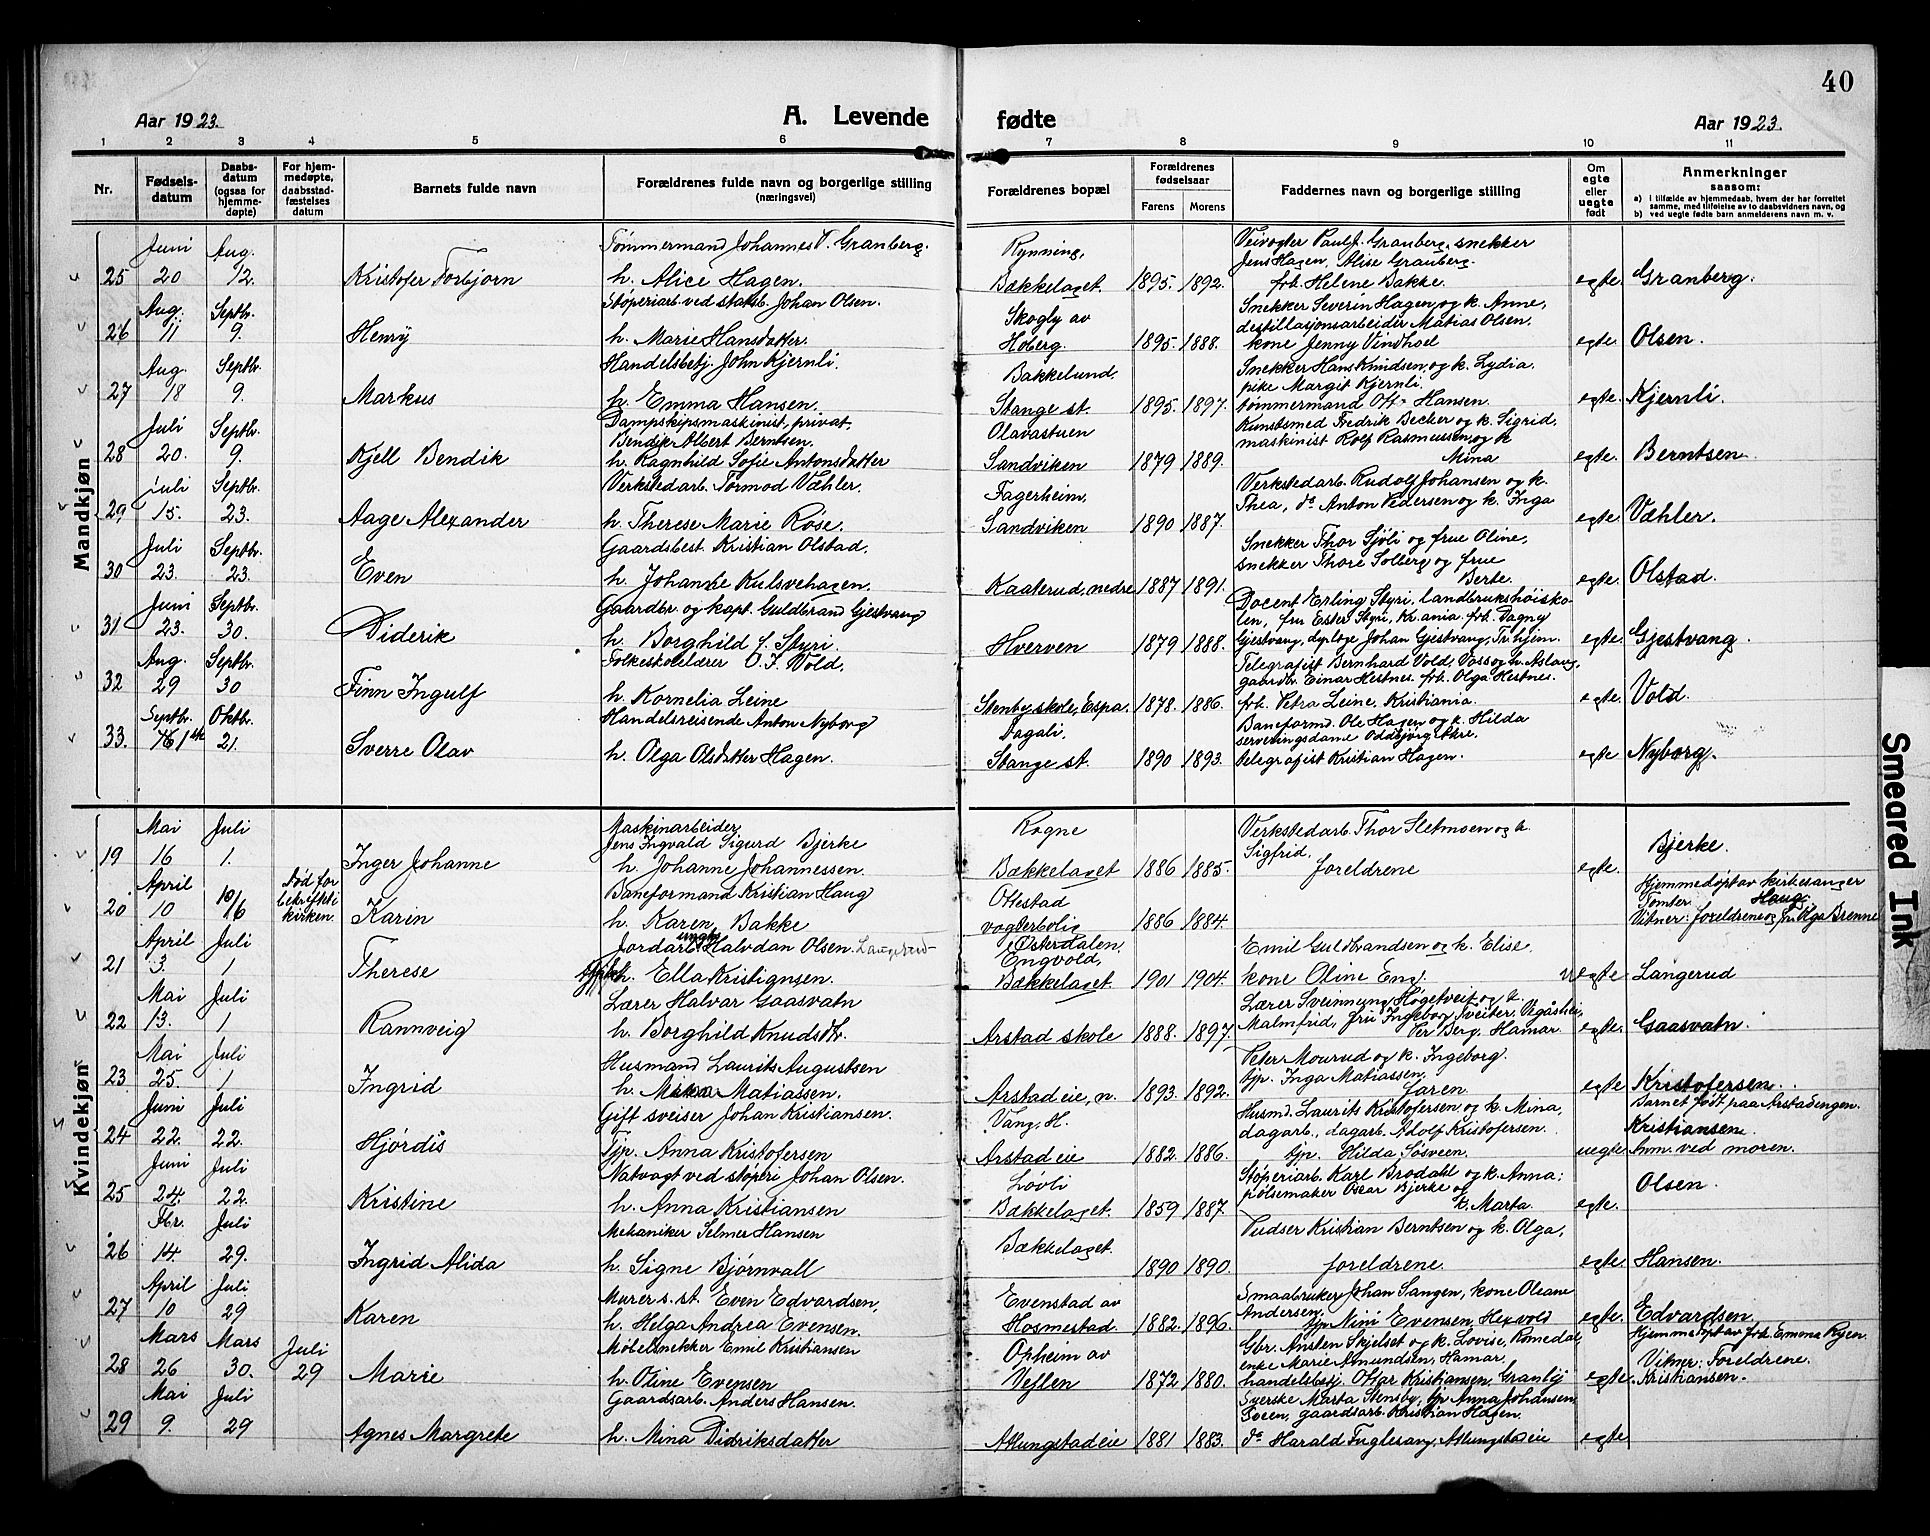 40
Aar 1923.
A. Levende fødte
Aar 1923.
1 2 3 4 5 6 7 8 9 10 11
Nr.
Fødsels-
datum
Daabs-
datum
(ogsaa for
hjemme-
døpte)
For hjem-
medøpte,
daabsstad-
fæstelses
datum
Barnets fulde navn
Forældrenes fulde navn og borgerlige stilling
(næringsvei)
Forældrenes bopæl
Forældrenes
fødselsaar
Farens Morens
Faddernes navn og borgerlige stilling
Om
egte
eller
uegte
født
Anmerkninger
saasom:
a) i tilfælde av hjemmedaab, hvem der har forrettet
samme, med tilføielse av to daabsvidners navn, og
b) ved uegte fødte barn anmelderens navn m. v.
Mandkjøn
25 Juni 20 Aug. 12. Kristofer Torbjørn
Tømmermand Johannes P. Granberg.
h. Alice Hagen.
Rynning,
Bækkelaget. 1895. 1892.
Veivogter Paul J. Granberg, snekker
Jens Hagen, Alise Granberg.
frk. Helene Bakke.
egte. Granberg.
26 Aug. 11 Septbr. 9. Henry
Støperiarb. ved statsb. Johan Olsen.
h. Marie Hansdatter.
Skogly av
Hoberg. 1895. 1888.
Snekker Severin Hagen og k. Anne,
destillasjonsarbeider Matias Olsen,
kone Jenny Vindhol
egte. Olsen.
27 Aug. 18 Septbr. 9. Markus
Handelsbetj. John Kjernli.
h. Emma Hansen.
Bakkelund,
Stange st. 1895. 1897.
Snekker Hans Knudsen og k. Lydia,
pike Margit Kjernli.
tømmermand Ott. Hansen.
egte. Kjernli.
28 Juli 20. Septbr. 9. Kjell Bendik
Dampskipsmaskinist, privat,
Bendik Albert Berntsen.
h. Ragnhild Sofie Antonsdatter
Olavastuen
Sandviken 1879 1889.
Kunstsmed Fredrik Becker og k. Sigrid,
maskinist Rolf Rasmussen og k
Mina
egte. Berntsen.
29 Juli 15. Septbr. 23. Aage Alexander
Verkstedarb. Tormod Væhler.
h. Therese Marie Røse.
Fagerheim,
Sandviken 1890 1887.
Verkstedarb. Rudolf Johansen og k.
Thea, ds Anton Pedersen og k. Inga
egte. Væhler.
30 Juli 23. Septbr. 23. Even
Gaardsbest. Kristian Olstad.
h. Johanne Kulsvehagen.
Kaaterud, nedre 1887 1891.
Snekker Thor Sjøli og frue Oline,
snekker Thore Solberg og frue
Berte.
egte. Olstad.
31 Juni 23. Septbr. 30. Diderik
Gaardbr. og kapt. Guldbrand Gjestvang
h. Borghild f. Styri
Hverven 1879 1888.
Docent Erling Styri, landbrukshøisko-
len, fru Ester Styri, Kr.ania frk. Dagny
Gjestvang, dyrlæge Johan Gjestvang, Tr.hjem.
egte. Gjestvang.
32 Aug. 29 Septbr. 30 Finn Ingulf
Folkeskolelærer O. J. Vold,
h. Kornelia Leine
Stenby skole, Espa. 1878. 1886.
Telegrafist Bernhard Vold, Voss og h. Aslaug,
gaardbr. Einar Hestnes. frk. Olga Hestnes.
frk. Petra Leine, Kristiania.
egte. Vold.
33. Septbr. 1ste Oktbr. 21. Sverre Olav
Handelsreisende Anton Nyborg
h. Olga Olsdatter Hagen.
Dagali,
Stange st. 1890 1893.
Baneformd. Ole Hagen og k. Hilda
serveringsdame Oddbjørg Akre.
telegrafist Kristian Hagen.
egte Nyborg.
Kvindekjøn
19 Mai 16 Juli 1. Inger Johanne
Maskinarbeider
Jens Ingvald Sigurd Bjerke
h. Johanne Johannessen.
Rogne
Bækkelaget 1886 1885.
Verkstedarb. Thor Sletmoen og k.
Sigfrid.
foreldrene
egte. Bjerke.
20 April 10 10/6 Død før
bekreftet i
kirken. Karin
Baneformand Kristian Haug
h. Karen Bakke
Ottestad
vogterbolig 1886 1884.
Hjemmedøpt av kirkesanger
Tomter. Haug.
Vitner: foreldrene og fru Olga Brenne
21 April 3. Juli 1 Therese
Jordarb. Halvdan Olsen. Langerud
h. Ella Kristiansen.
Østerdalen.
Engvold,
Bækkelaget. 1901 1904.
Emil Guldbrandsen og k. Elise.
kone Oline Eng.
uegte. Langerud
22 Mai 13. Juli 1 Rannveig
Lærer Halvar Gaasvatn
h. Borghild Knudsdtr.
Arstad skole 1888. 1897.
Lærer Sveinung Høgetveit og k.
Malmfrid, fru Ingeborg Sveiter, Vegåshei,
Per Berg, Hamar
egte. Gaasvatn.
23 Mai 25. Juli 1 Ingrid
Husmand Laurits Augustsen
h. Mina Matiassen.
Arstad eie, n. 1893. 1892.
Peter Mourud og k. Ingeborg.
tjp. Inga Matiassen,
Jaren.
egte Kristofersen.
Barnet født paa Arstadengen.
24 Juni 22. Juli 22. Hjørdis
Gift sveiser Johan Kristiansen.
Tjp. Anna Kristofersen
Vang, H.
Arstad eie 1882. 1886.
Husmd. Laurits Kristofersen og k. Mina,
dagarb., dagarb. Adolf Kristofersen.
tjp. Hilda Søsveen.
uegte Kristiansen.
Anm. ved moren.
25 Juni 24. Juli 22. Kristine
Natvagt ved støperi Johan Olsen.
h. Anna Kristiansen
Løvli
Bækkelaget. 1859 1887
Støperiarb. Karl Brodahl og k. Anna;
pølsemaker Oscar Bjerke og
k. Marta
egte. Olsen.
26 Fbr. 14. Juli 29. Ingrid Alida
Mekaniker Selmer Hansen
h. Signe Bjørnvall
Bækkelaget. 1890 1890.
Pudser Kristian Berntsen og k. Olga,
foreldrene.
egte Hansen.
27 April 10 Juli 29 Karen
Murer s. st. Even Edvardsen,
h. Helga Andrea Evensen.
Evenstad av
Hosmestad. 1882. 1896.
Smaabruker Johan Sangen, kone Oleane
Andersen, tjp. Nini Evensen, Hexvold
egte. Edvardsen
28 Mars 26 Mars 30. Juli 29 Marie
Møbelsnekker Emil Kristiansen
h. Oline Evensen
Opheim av
Veflen 1872 1880.
Gbr. Ansten Skjelset og k. Lovise, Romedal,
enke Marie Amundsen, Hamar,
handelsbetj. Ottar Kristiansen, Granlij
egte.
Hjemmedøpt av frk. Emma Ryen.
Vitner: Foreldrene.
Kristiansen.
29 Mai 9. Juli 29 Agnes Margrete
Gaardsarb. Anders Hansen.
h. Mina Didriksdatter
Atlungstad eie 1881 1883.
Syerske Marta Stensby, tjp. Anna Johansen,
Sveen, gaardsarb. Kristian Hagen.
ds Harald Fuglesang, Atlungstad eie
egte
Smeared Ink